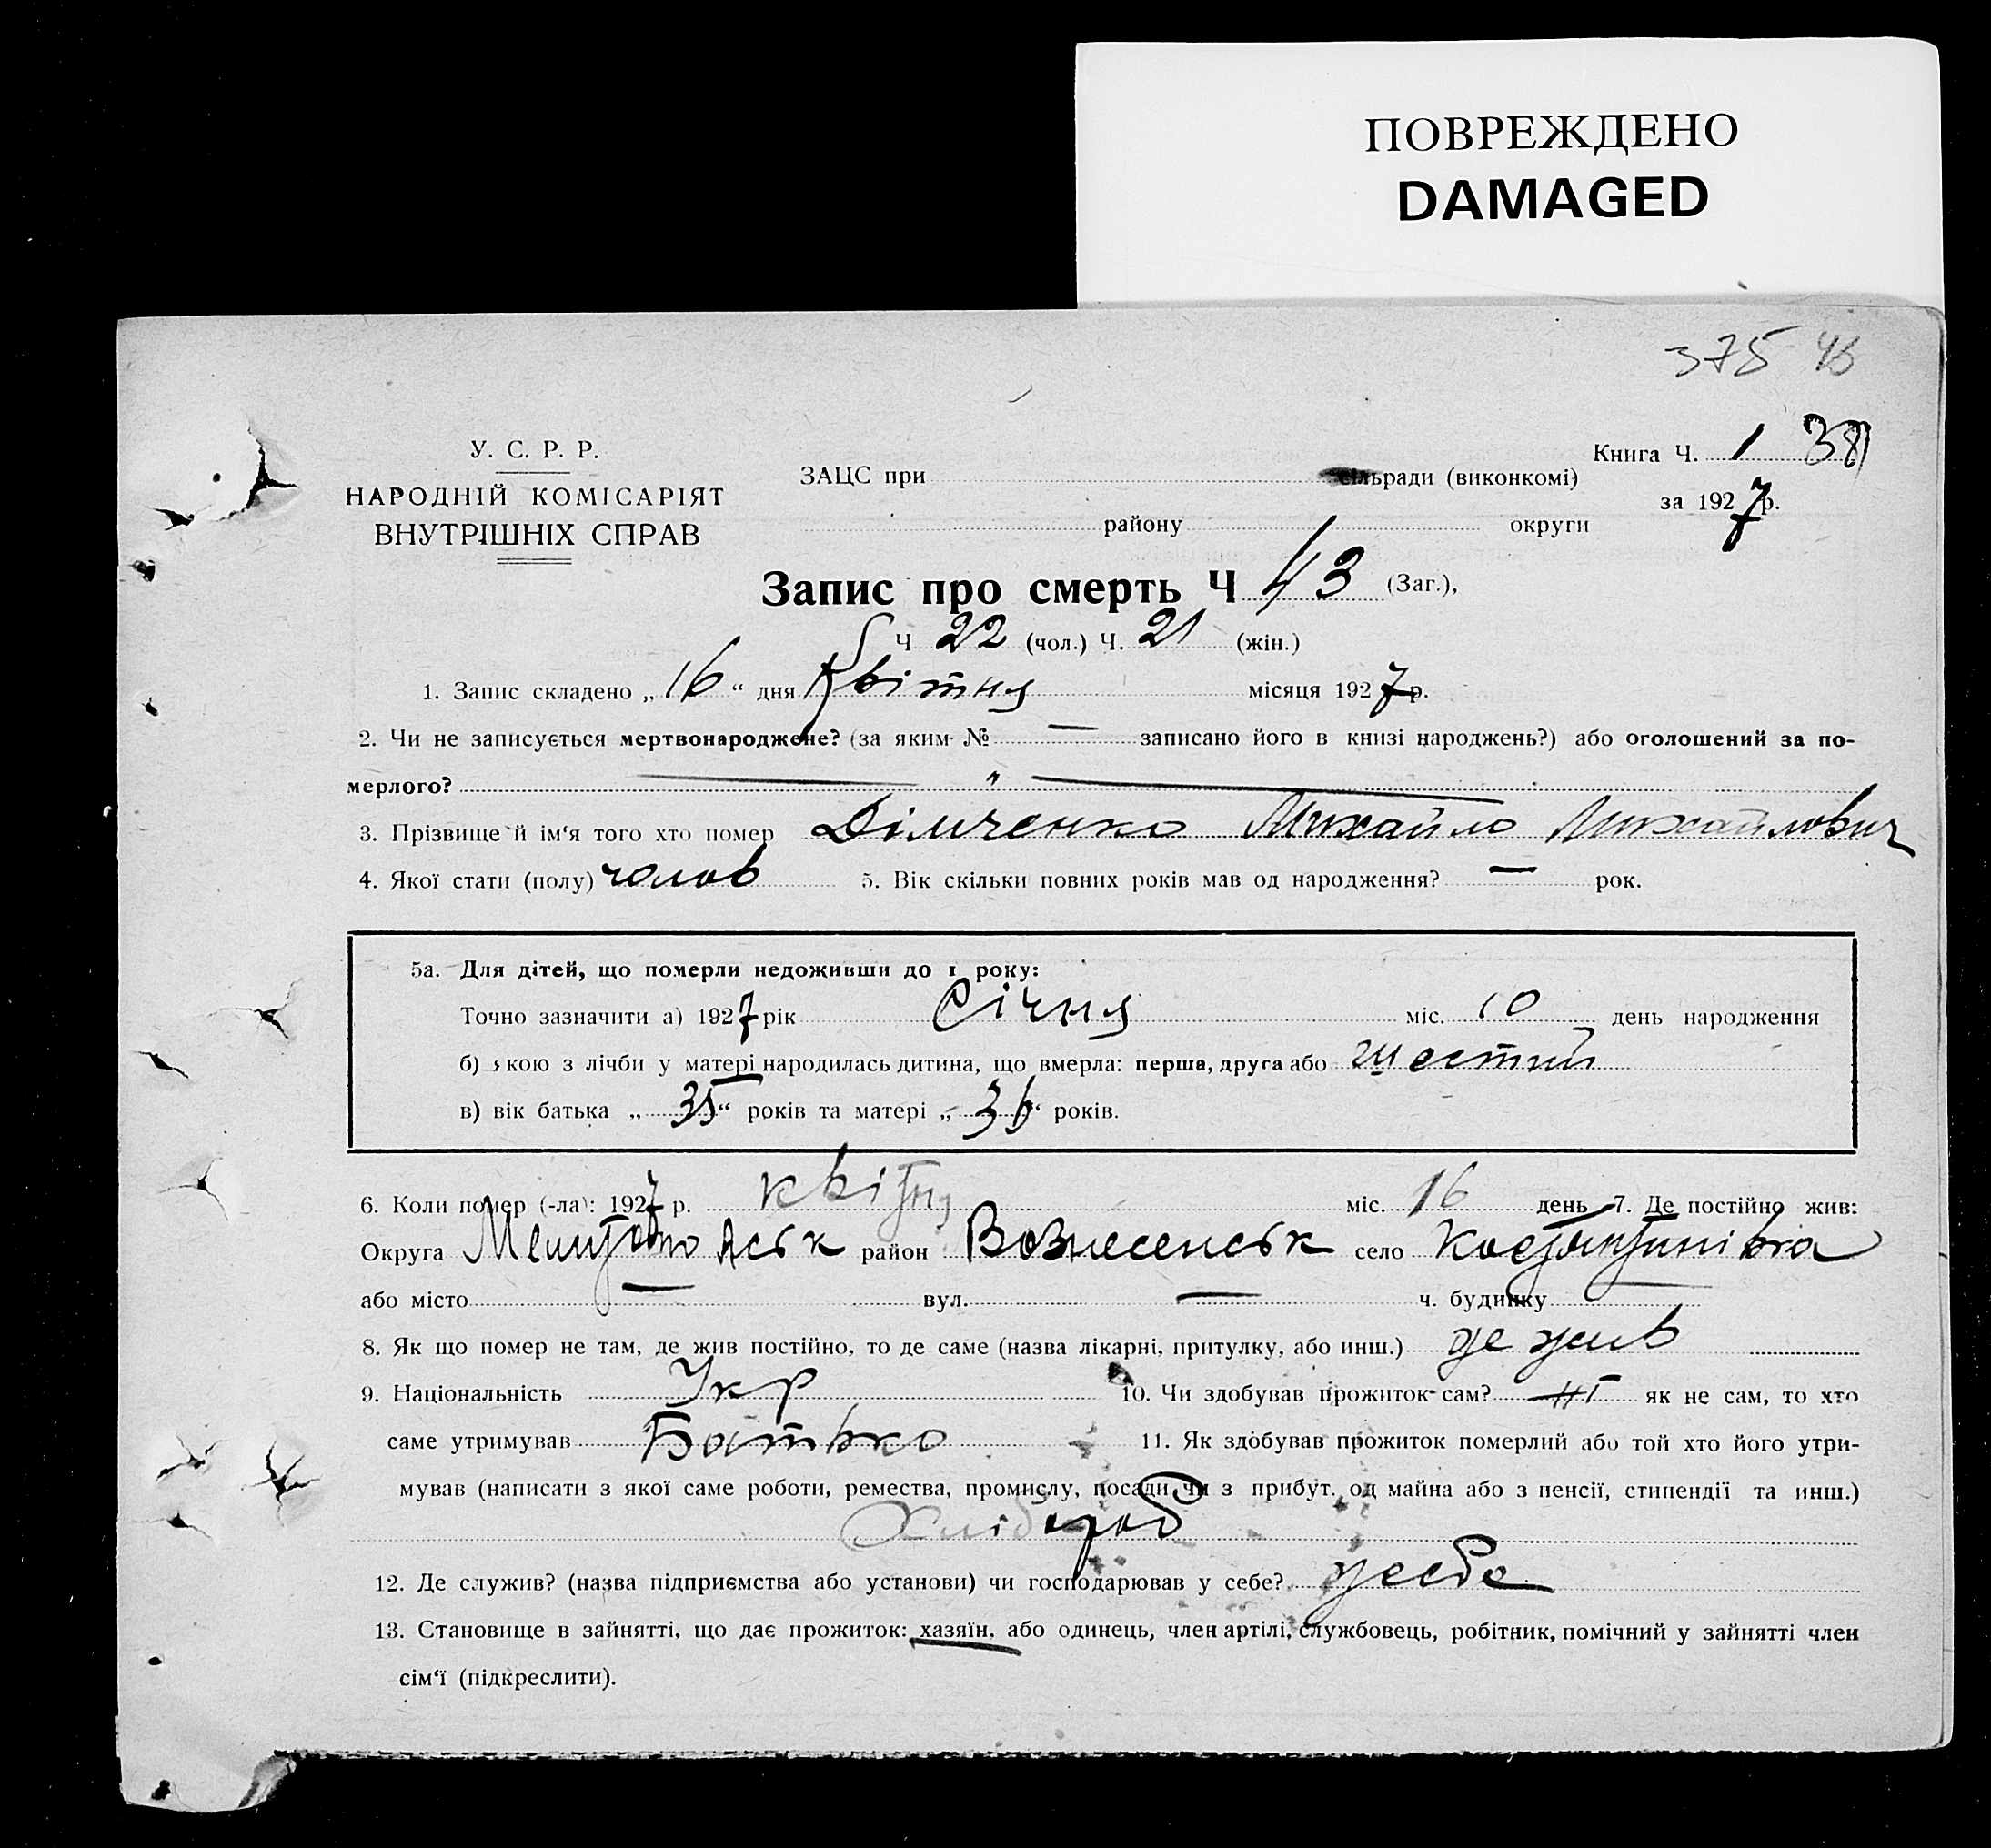 ПОВРЕЖДЕНО
DAMAGED
375 46
У. С. Р. Р.
НАРОДНІЙ КОМІСАРІЯТ
ВНУТРІШНІХ СПРАВ
Книга Ч. 1 38
ЗАЦС при сільради (виконкомі)
за 1927 р.
району округи
Запис про смерть Ч 43 (Заг.),
Ч 22 (чол.) Ч. 21 (жін.)
1. Запис складено „ 16 “ дня Квітня місяця 1927 р.
2. Чи не записується мертвонароджене? (за яким № — записано його в книзі народжень?) або оголошений за по-
мерлого? — „ —
3. Прізвище й ім‘я того хто помер Дімченко Михайло Михайлович
4. Якої стати (полу) чолов 5. Вік скільки повних років мав од народження? — рок.
5а. Для дітей, що померли недоживши до 1 року:
Точно зазначити а) 1927 рік Січня міс. 10 день народження
б) якою з лічби у матері народилась дитина, що вмерла: перша, друга або шестий
в) вік батька „ 35 “ років та матері „ 36 “ років.
6. Коли помер (-ла): 1927 р. квітня міс. 16 день 7. Де постійно жив:
Округа Мелитопольськ район Вознесенськ село Костянтинівка
або місто — вул. — ч. будинку —
8. Як що помер не там, де жив постійно, то де саме (назва лікарні, притулку, або инш.) де жив
9. Національність Укр 10. Чи здобував прожиток сам? ні як не сам, то хто
саме утримував Батько 11. Як здобував прожиток померлий або той хто його утри-
мував (написати з якої саме роботи, ремества, промислу, посади чи з прибут. од майна або з пенсії, стипендії та инш.)
Хлібороб
12. Де служив? (назва підприємства або установи) чи господарював у себе? усебе
13. Становище в зайнятті, що дає прожиток: хазяїн, або одинець, член артілі, службовець, робітник, помічний у зайнятті член
сім‘ї (підкреслити).